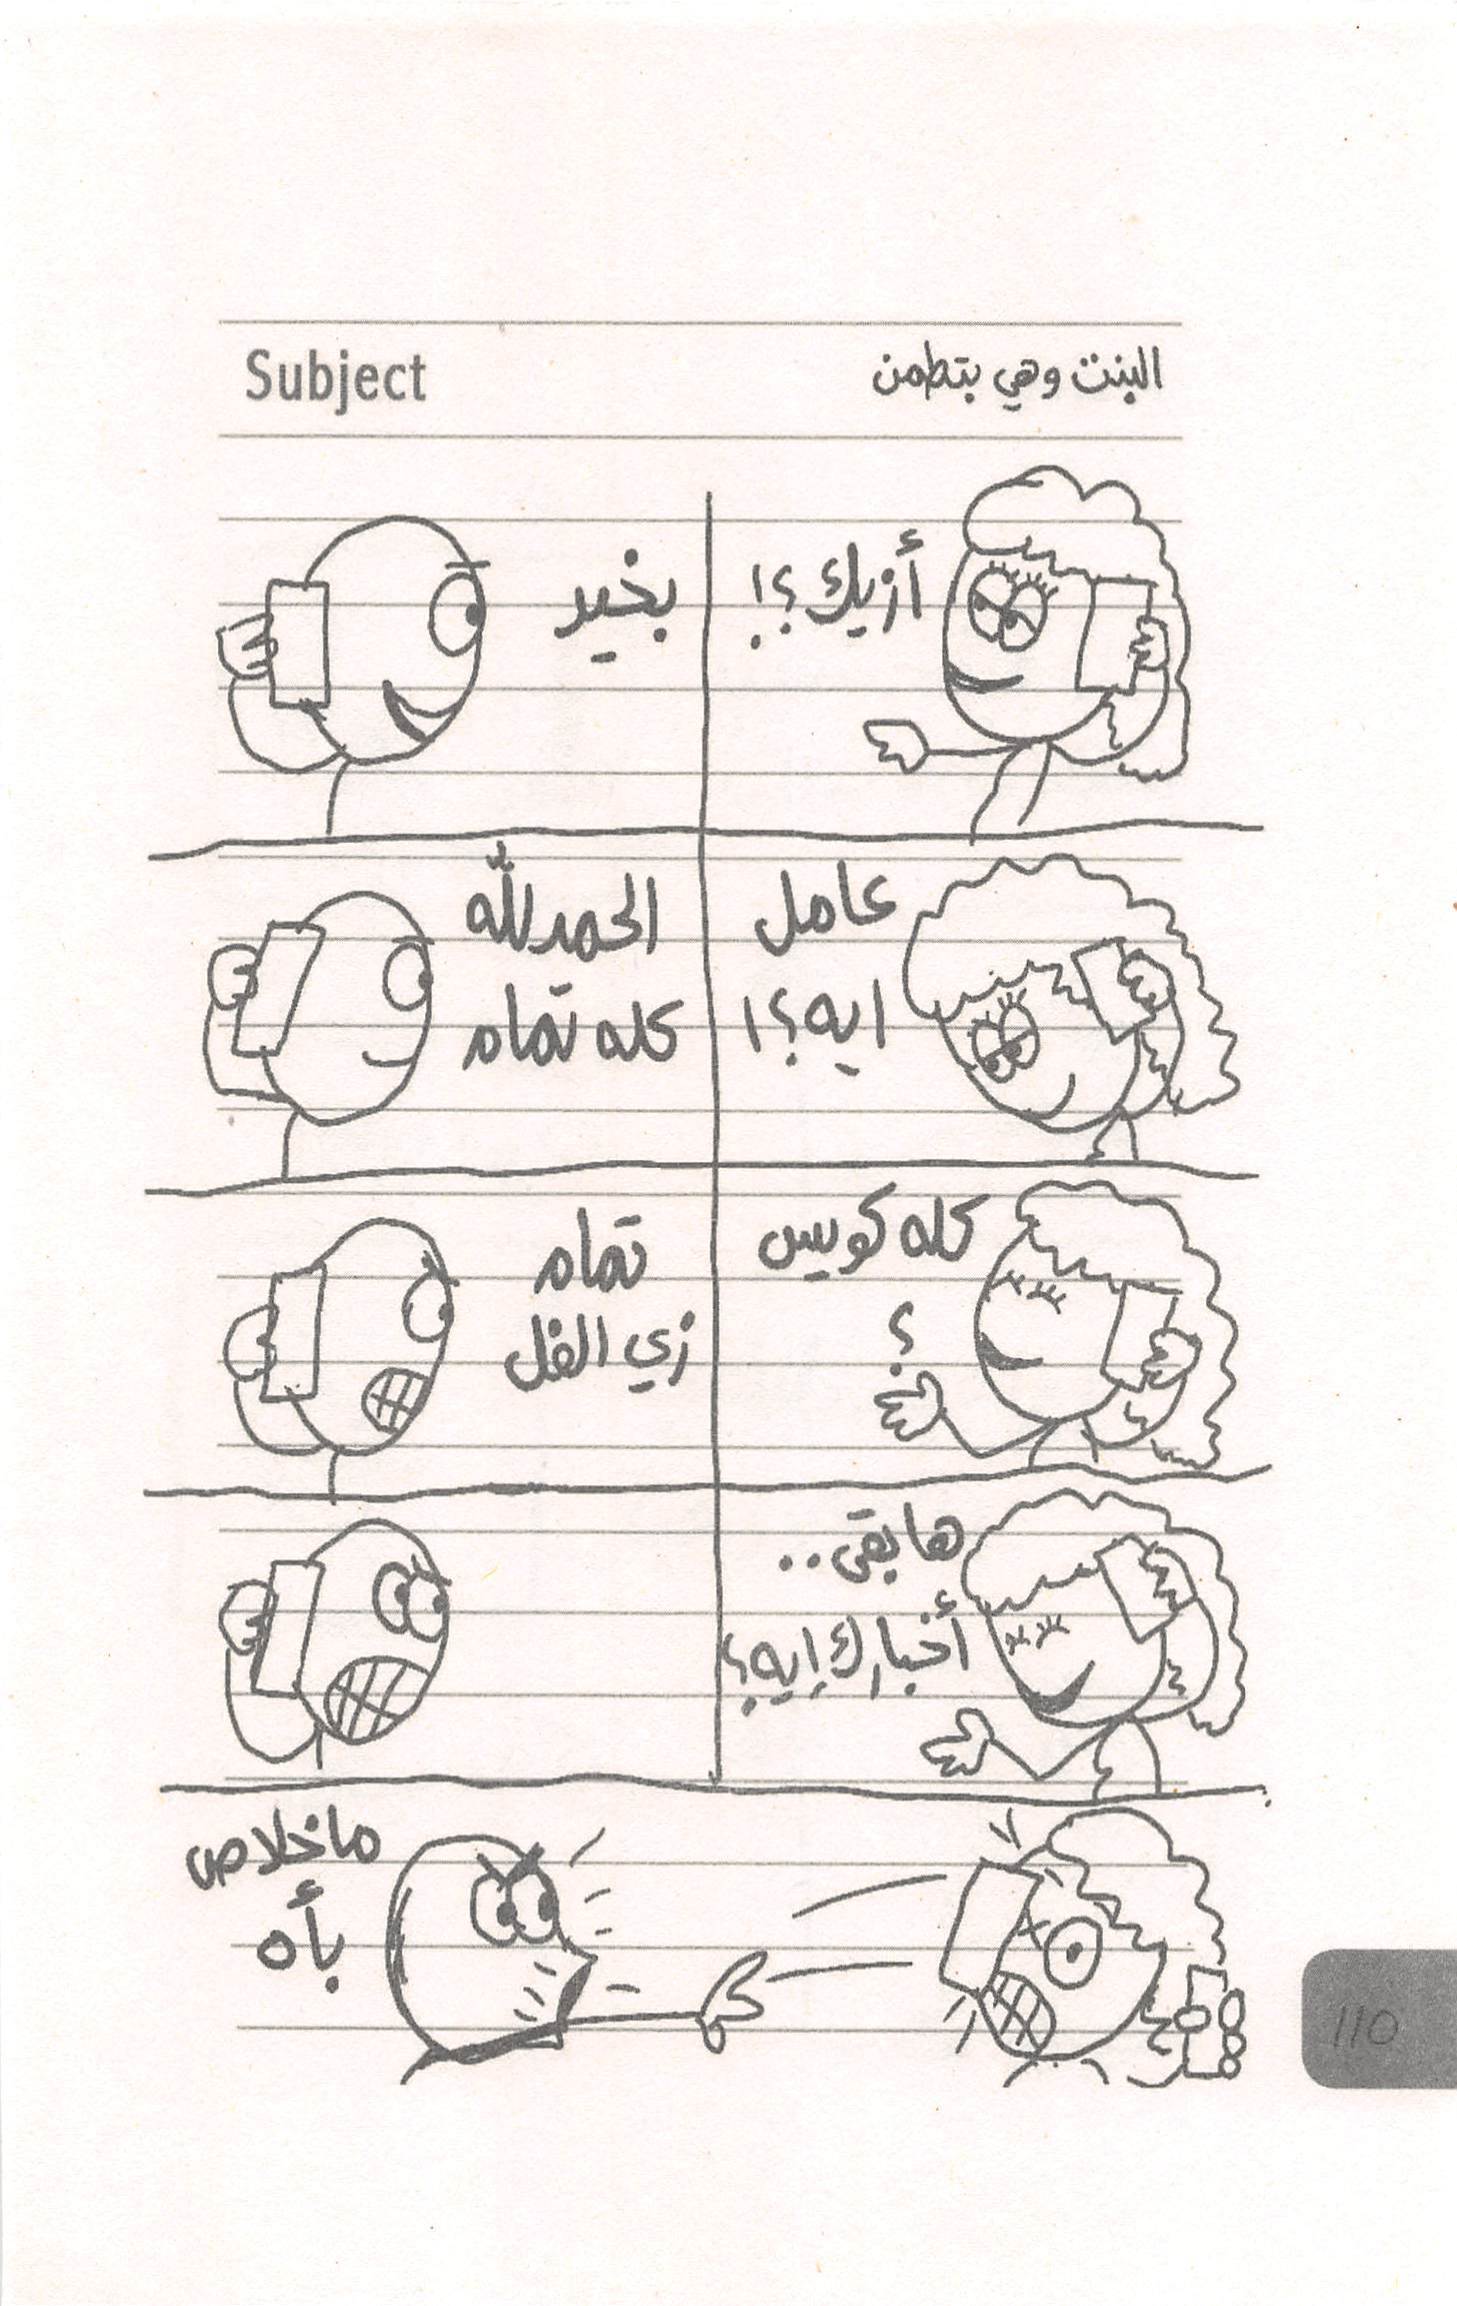 Subject
البنت وهي بتطمن
أزيك؟!
بخير
عامل
ايه؟!
الحمدلله
كله تمام
كله كويس
؟
تمام
زي الفل
ها بقى..
أخبارك إيه؟
ما خلاص
بأه
110